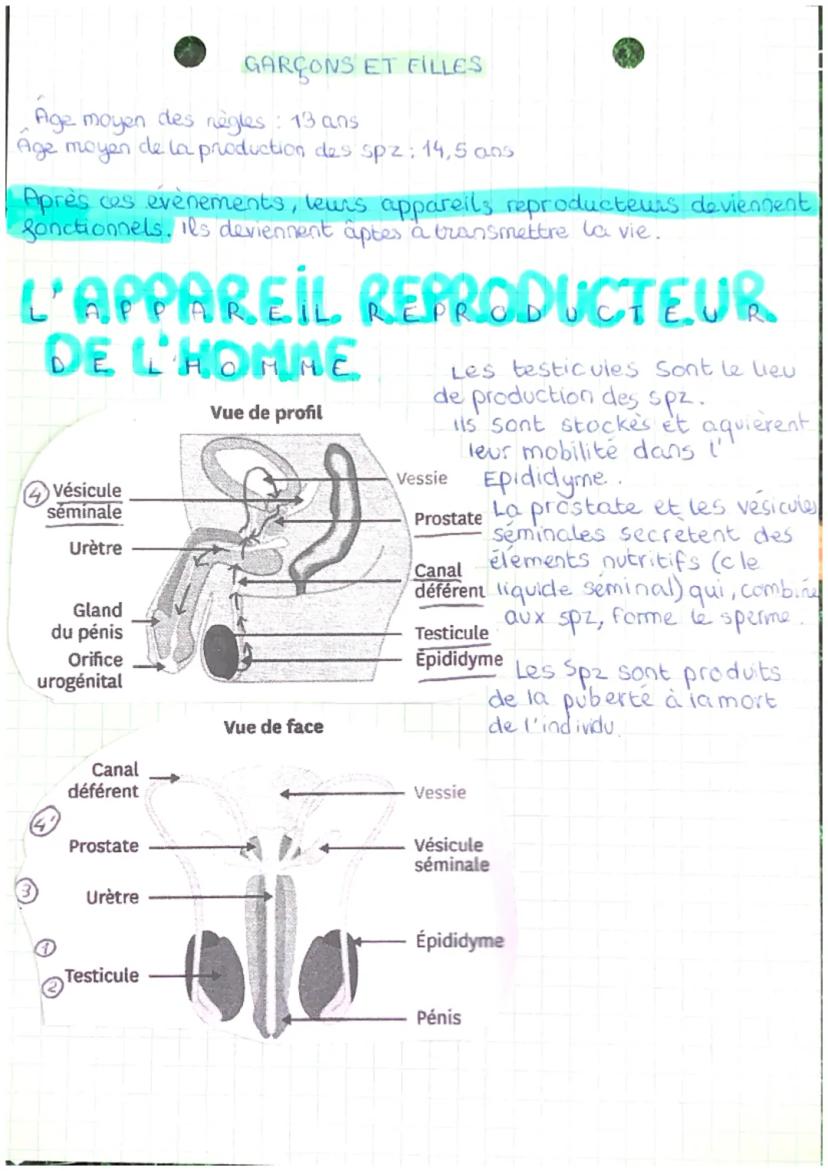 GARÇONS ET FILLES
Âge moyen des règles : 13 ans
Âge moyen de la production des spz : 14,5 ans
Après ces évènements, leurs appareils reproducteurs deviennent
fonctionnels. Ils deviennent âptes à transmettre la vie.
L'APPAREIL REPRODUCTEUR
DE L'HOMME
Les testicules sont le lieu
de production des spz.
Ils sont stockés et aquièrent
leur mobilité dans l'
Epididyme.
La prostate et les vésicules
séminales secrètent des
éléments nutritifs (cle
liquide séminal) qui, combiné
aux spz, forme le sperme.
Les Spz sont produits
de la puberté à la mort
de l'individu.
Vue de profil
4 Vésicule
séminale
Urètre
Gland
du pénis
Orifice
urogénital
Vessie
Prostate
Canal
déférent
Testicule
Épididyme
Vue de face
Canal
déférent
4'
Prostate
3
Urètre
1
2 Testicule
Vessie
Vésicule
séminale
Épididyme
Pénis